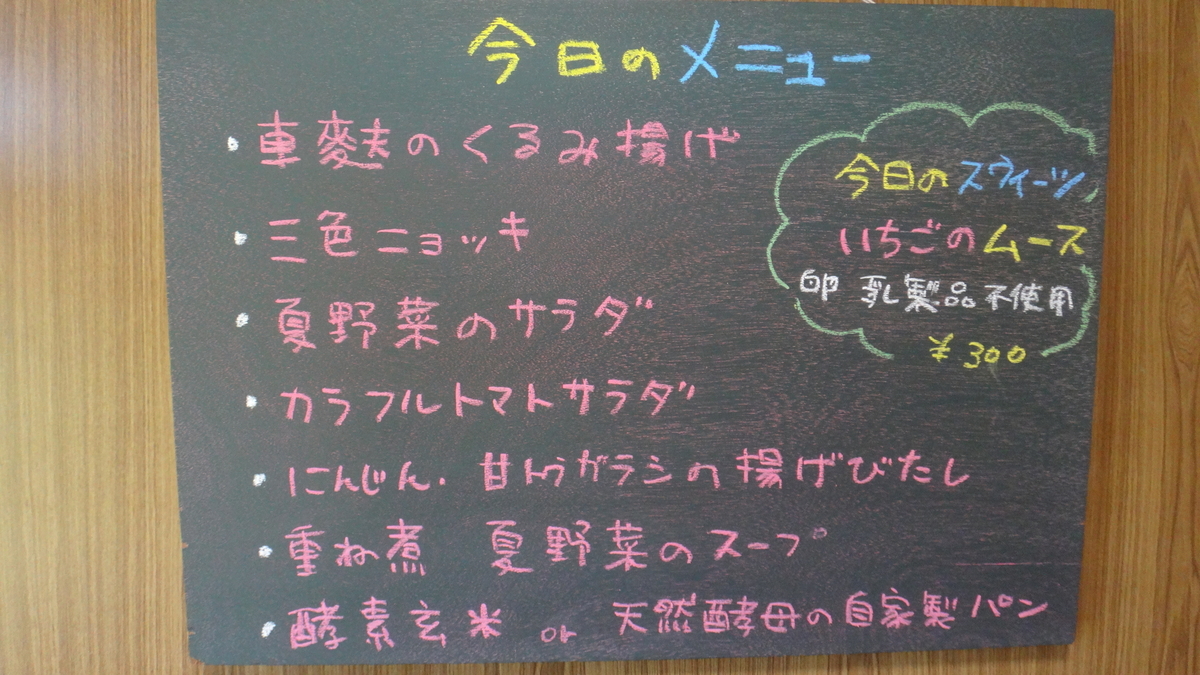 今日のメニュー
・車麩のくるみ揚げ
・三色ニョッキ
・夏野菜のサラダ
・カラフルトマトサラダ
・にんじん・甘トウガラシの揚げびたし
・重ね煮 夏野菜のスープ
・酵素玄米 or 天然酵母の自家製パン
今日のスウィーツ
いちごのムース
卵 乳製品不使用
¥300